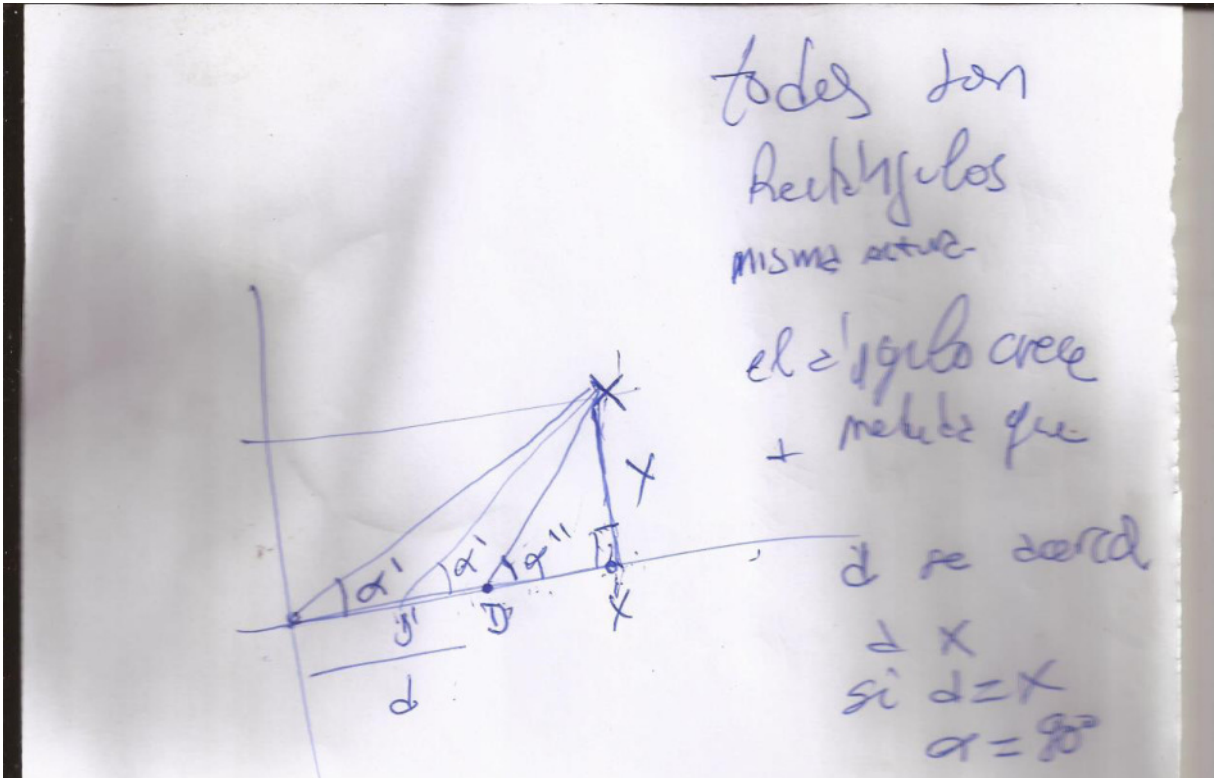 todos son
Rectángulos
misma altura
el ángulo crece
a medida que
d se acerca
a X
si d = X
α = 90°
X
α'
α'
α''
D'
D
X
d